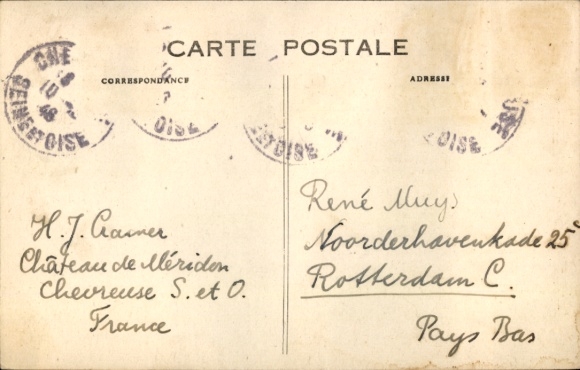 CARTE POSTALE
CORRESPONDANCE
ADRESSE
CHE
10
48
SEINE ET OISE
OISE
ET OISE
OISE
H. J. Cramer
Château de Méridon
Chevreuse S. et O.
France
René Muys
Noorderhavenkade 25c
Rotterdam C.
Pays Bas